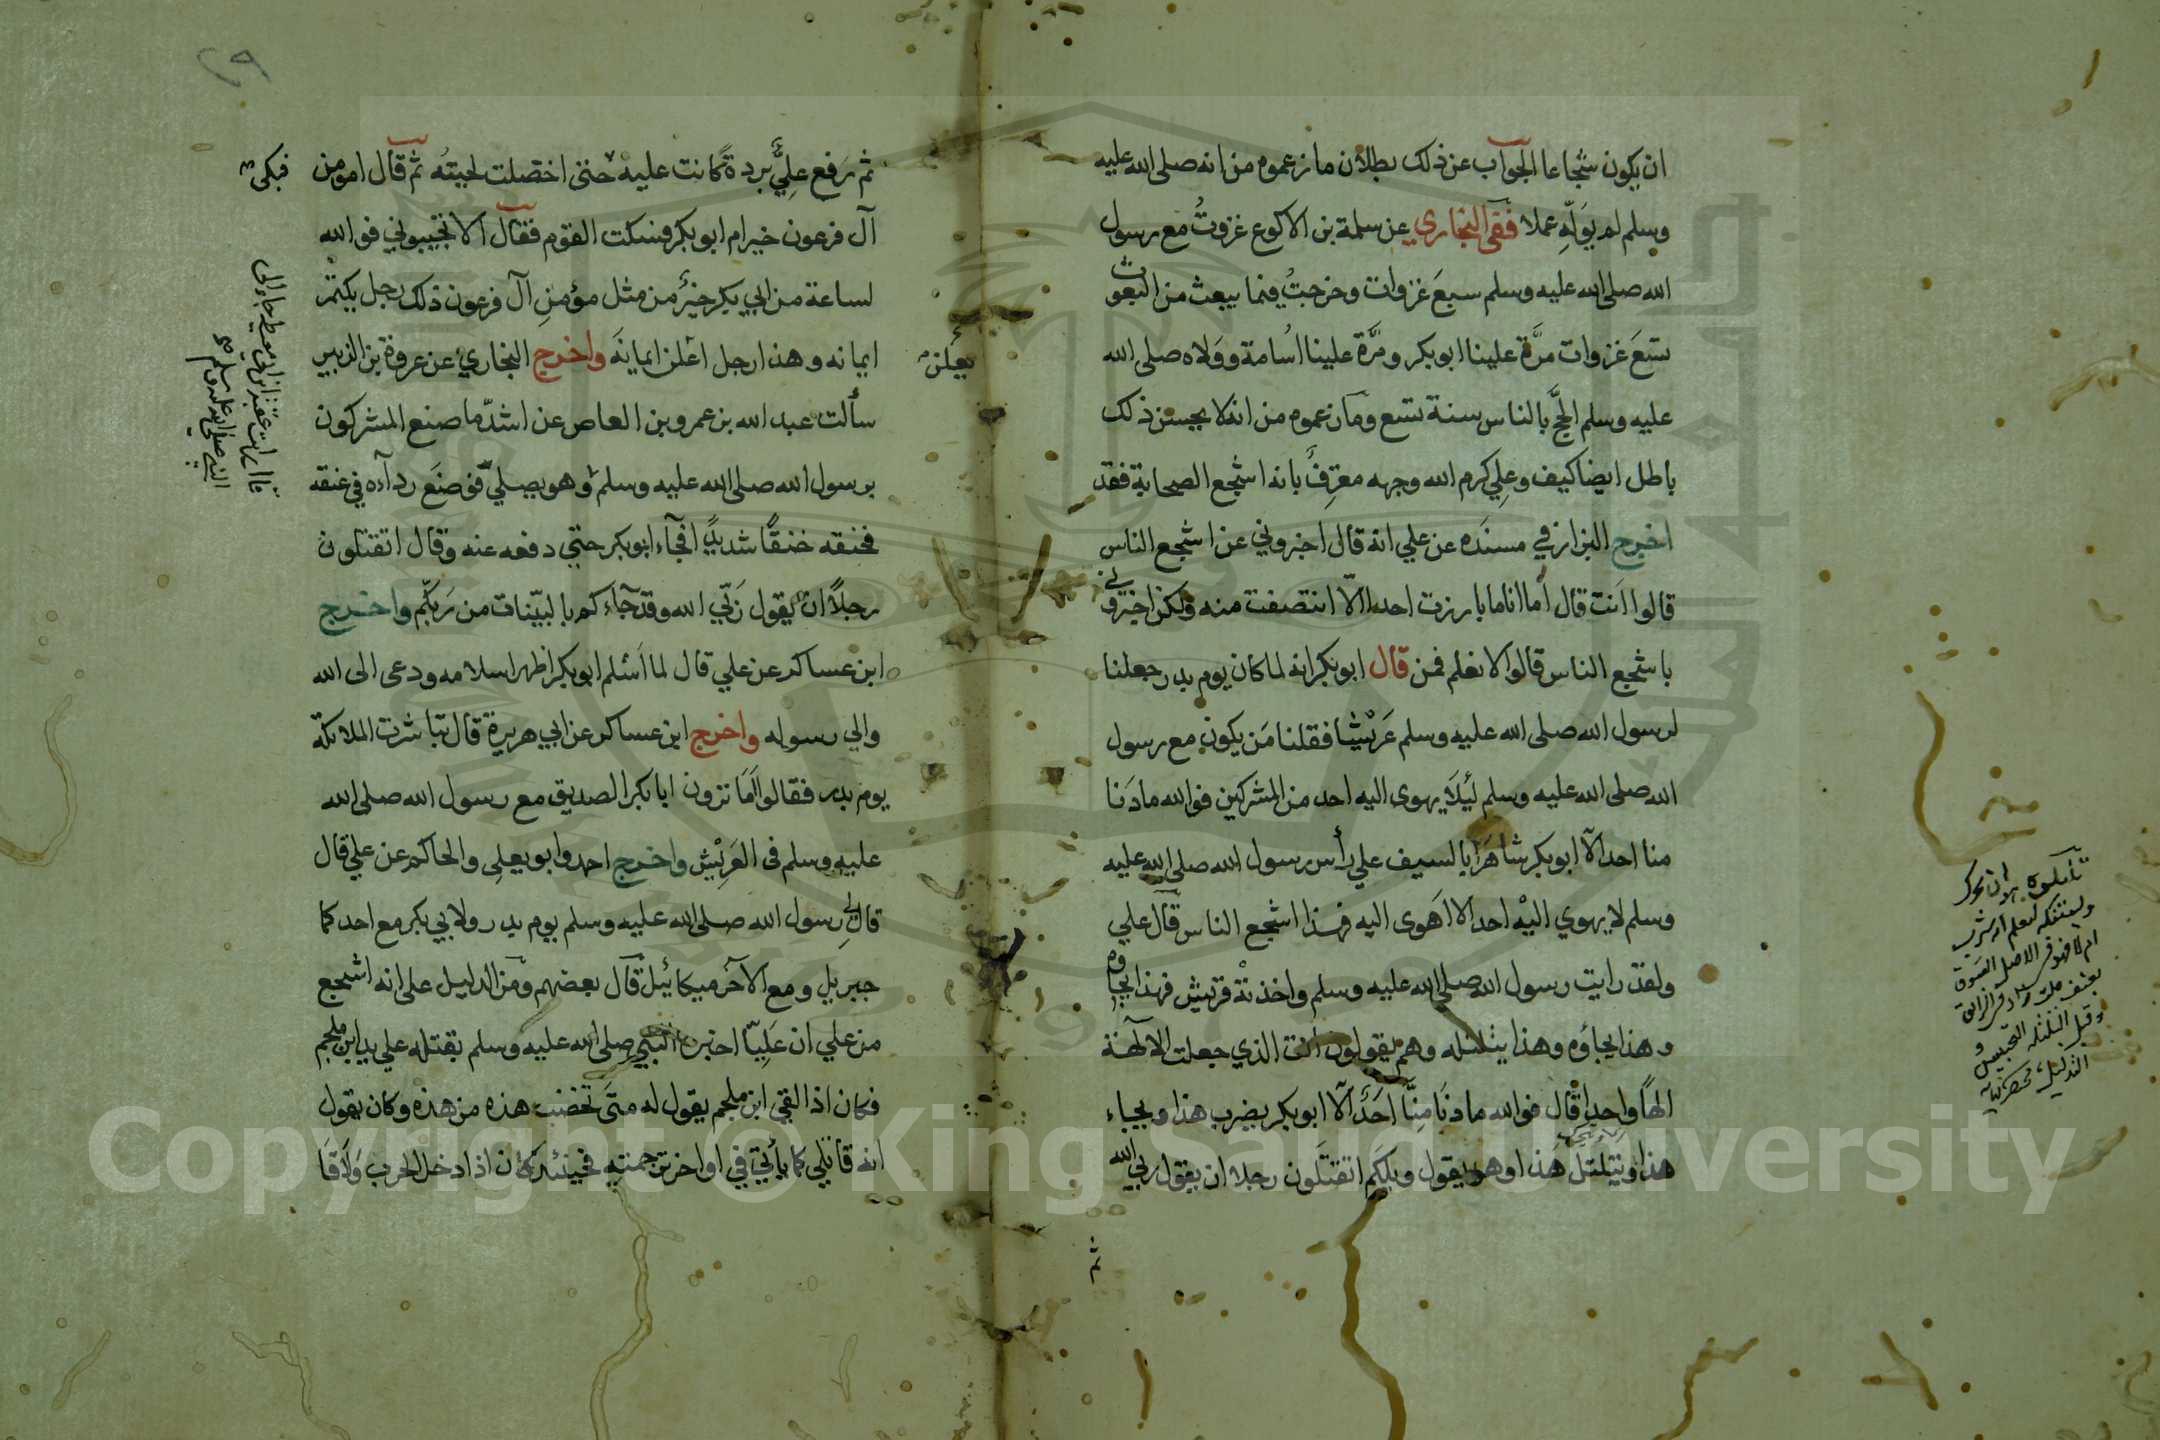 ان يكون شجاعا الجواب عن ذلك بطلان ما زعموه من انه صلى الله عليه
وسلم لم يوله عملا ففي البخاري عن سلمة بن الاكوع غزوت مع رسول
الله صلى الله عليه وسلم سبع غزوات وخرجت فيما يبعث من البعوث
تسع غزوات مرة علينا ابو بكر ومرة علينا اسامة وولاه صلى الله
عليه وسلم الحج بالناس سنة تسع وما زعموه من انه لا يحسن ذلك
باطل ايضا كيف وعلي كرم الله وجهه معترف بانه اشجع الصحابة فقد
اخرج البزار في مسنده عن علي انه قال اخبروني عن اشجع الناس
قالوا انت قال أما انا ما بارزت احدا الا انتصفت منه ولكن اخبروني
باشجع الناس قالوا لا نعلم فمن قال ابو بكر انه لما كان يوم بدر جعلنا
لرسول الله صلى الله عليه وسلم عريشا فقلنا من يكون مع رسول
الله صلى الله عليه وسلم ليلا يهوي اليه احد من المشركين فوالله ما دنا
منا احد الا ابو بكر شاهرا بالسيف على رأس رسول الله صلى الله عليه
وسلم لا يهوي اليه احد الا اهوى اليه فهذا اشجع الناس قال علي
ولقد رايت رسول الله صلى الله عليه وسلم واخذته قريش فهذا يجاوه
وهذا يجاؤه وهذا يتلتله وهم يقولون انت الذي جعلت الآلهة
الها واحدا قال فوالله ما دنا منا احد الا ابو بكر يضرب هذا ويجاء
هذا ويتلتل هذا وهو يقول ويلكم اتقتلون رجلا ان يقول ربي الله
ثم
ثم رفع علي بردة كانت عليه حتى اخضلت لحيته ثم قال امومن
فبكى
آل فرعون خير ام ابو بكر فسكت القوم فقال الا تجيبوني فوالله
لساعة من ابي بكر خير من مثل مؤمن آل فرعون ذلك رجل يكتم
ايمانه وهذا رجل اعلن ايمانه واخرج البخاري عن عروة بن الزبير
يعلن
سألت عبد الله بن عمرو بن العاص عن اشد ما صنع المشركون
برسول الله صلى الله عليه وسلم وهو يصلي فوضع رداءه في عنقه
قال رايت عقبة ابن ابي معيط جاء الى
النبي صلى الله عليه وسلم
فخنقه خنقا شديدا فجاء ابو بكر حتى دفعه عنه وقال اتقتلون
رجلا ان يقول ربي الله وقد جاءكم بالبينات من ربكم واخرج
ابن عساكر عن علي قال لما اسلم ابو بكر اظهر اسلامه ودعى الى الله
والى رسوله واخرج ابن عساكر عن ابي هريرة قال تباشرت الملائكة
يوم بدر فقالوا أما ترون ابا بكر الصديق مع رسول الله صلى الله
عليه وسلم في العريش واخرج احمد وابو يعلى والحاكم عن علي قال
قال لي رسول الله صلى الله عليه وسلم يوم بدر ولابي بكر مع احد كما
جبريل ومع الآخر ميكائيل قال بعضهم ومن الدليل على انه اشجع
من علي ان عليا اخبره النبي صلى الله عليه وسلم بقتله على يد ابن ملجم
فكان اذا لقي ابن ملجم يقول له متى تخضب هذه من هذه وكان يقول
انه قاتلي كما يأتي في اواخر ترجمته فحينئذ كان اذا دخل الحرب ولاقا